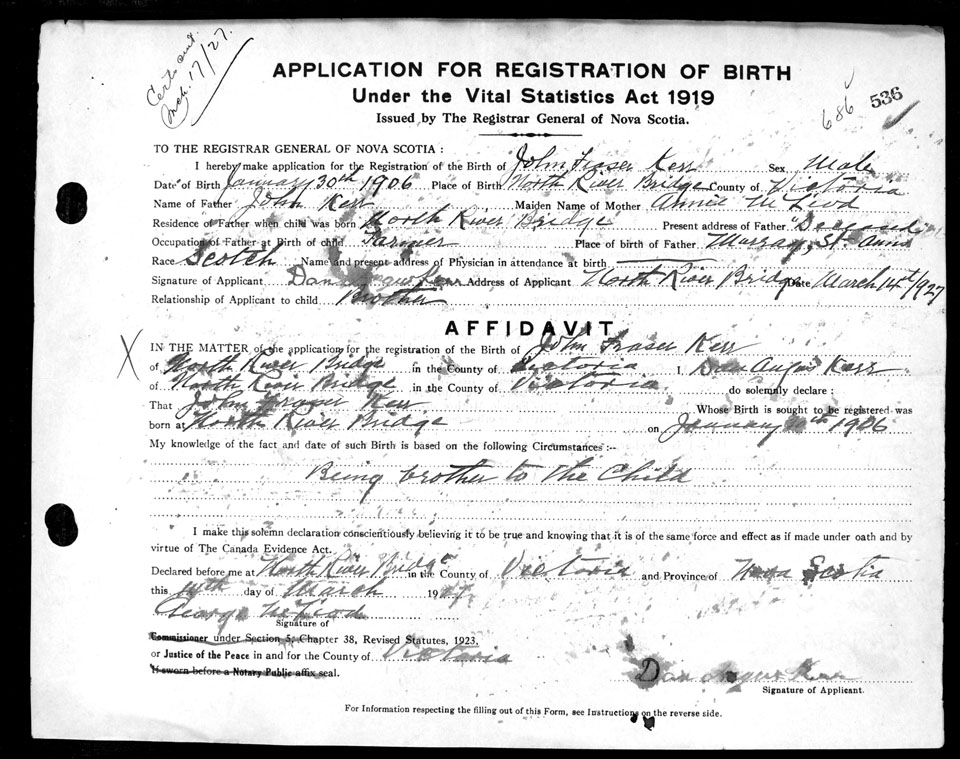 Certs sent.
Mch. 17/27.
APPLICATION FOR REGISTRATION OF BIRTH
Under the Vital Statistics Act 1919
Issued by The Registrar General of Nova Scotia.
686 536
TO THE REGISTRAR GENERAL OF NOVA SCOTIA :
I hereby make application for the Registration of the Birth of John Fraser Kerr Sex Male
Date of Birth January 30th 1906 Place of Birth North River Bridge County of Victoria
Name of Father John Kerr Maiden Name of Mother Annie McLeod
Residence of Father when child was born North River Bridge Present address of Father "Deceased"
Occupation of Father at Birth of child Farmer Place of birth of Father Murray, St. Anns
Race Scotch Name and present address of Physician in attendance at birth
Signature of Applicant Dan Angus Kerr Address of Applicant North River Bridge Date March 14th/1927
Relationship of Applicant to child Brother
AFFIDAVIT
X IN THE MATTER of the application for the registration of the Birth of John Fraser Kerr
of North River Bridge in the County of Victoria I Dan Angus Kerr
of North River Bridge in the County of Victoria do solemnly declare :
That John Fraser Kerr Whose Birth is sought to be registered was
born at North River Bridge on January 30th 1906
My knowledge of the fact and date of such Birth is based on the following Circumstances :--
Being brother to the Child
I make this solemn declaration conscientiously believing it to be true and knowing that it is of the same force and effect as if made under oath and by
virtue of The Canada Evidence Act.
Declared before me at North River Bridge in the County of Victoria and Province of Nova Scotia
this 14th day of March 1927
George McLeod
Signature of
Commissioner under Section 5, Chapter 38, Revised Statutes, 1923,
or Justice of the Peace in and for the County of Victoria
If sworn before a Notary Public affix seal.
Dan Angus Kerr
Signature of Applicant.
For Information respecting the filling out of this Form, see Instructions on the reverse side.